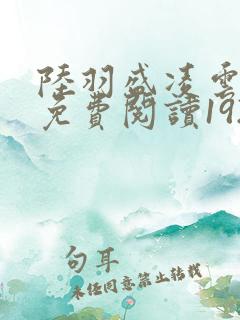 陸羽盛凌雲
免費閱讀19
句耳
未经同意禁止转载